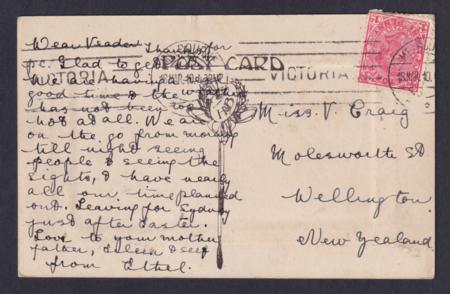 Dear Veader Thanks for
pc. Glad to get
We are having a
good time & the weather
has not been too
hot at all. We are
on the go from morning
till night seeing
people & seeing the
sights, & have nearly
all our time planned
out. Leaving for Sydney
just after Easter.
Love to your mother
father, Eileen & self
from Ethel.
POST CARD
VICTORIA
VICTORIA
Miss. V. Craig
Molesworth St
Wellington.
New Zealand.